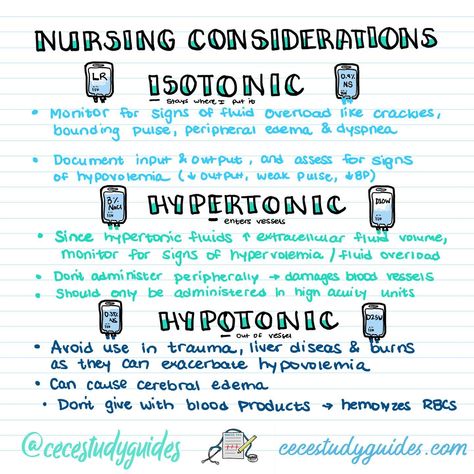 NURSING CONSIDERATIONS
LR
ISOTONIC
0.9%
NS
Stays where I put it
• Monitor for signs of fluid overload like crackles,
bounding pulse, peripheral edema & dyspnea
• Document input & output, and assess for signs
of hypovolemia (↓output, weak pulse, ↓BP)
3%
NaCl
HYPERTONIC
D10W
enters vessels
• Since hypertonic fluids ↑ extracellular fluid volume,
monitor for signs of hypervolemia / fluid overload
• Don't administer peripherally → damages blood vessels
• Should only be administered in high acuity units
NS
HYPOTONIC
out of vessel
• Avoid use in trauma, liver diseas & burns
as they can exacerbate hypovolemia
• Can cause cerebral edema
• Don't give with blood products → hemolyzes RBCs
@cecestudyguides
cecestudyguides.com